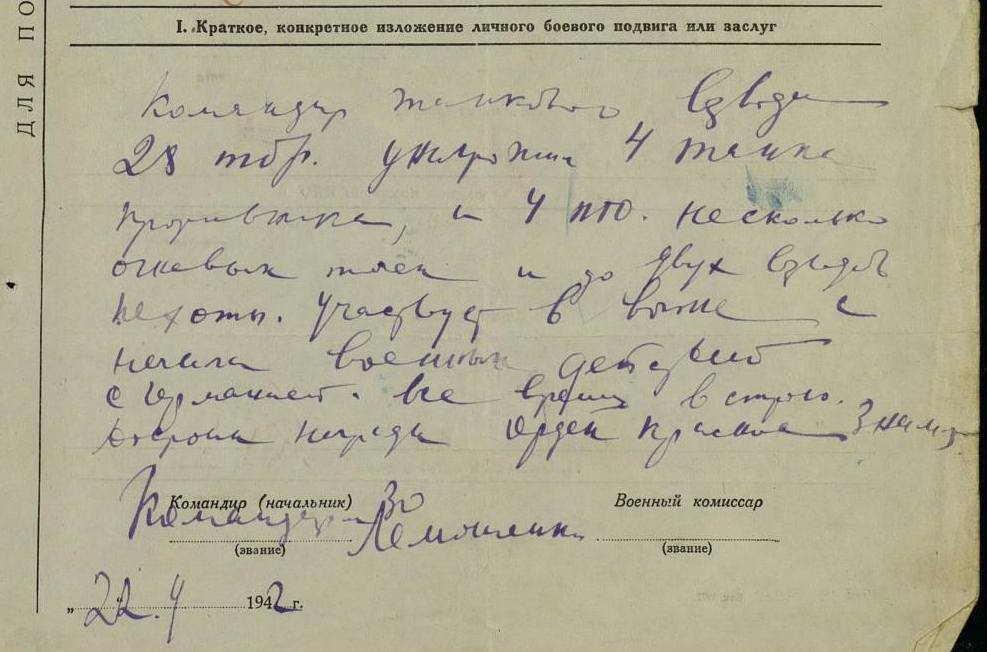 ДЛЯ ПО
I. Краткое, конкретное изложение личного боевого подвига или заслуг
Командир танкового взвода
28 тбр. уничтожил 4 танка
противника, и 4 пто. несколько
огневых точек и до двух взводов
пехоты. Участвует в войне с
начала военных действий
с Германией. все время в строю.
Достоин награды орден Красное Знамя
Командир (начальник)
Военный комиссар
Командир
(звание)
(звание)
„22.4 1942 г.